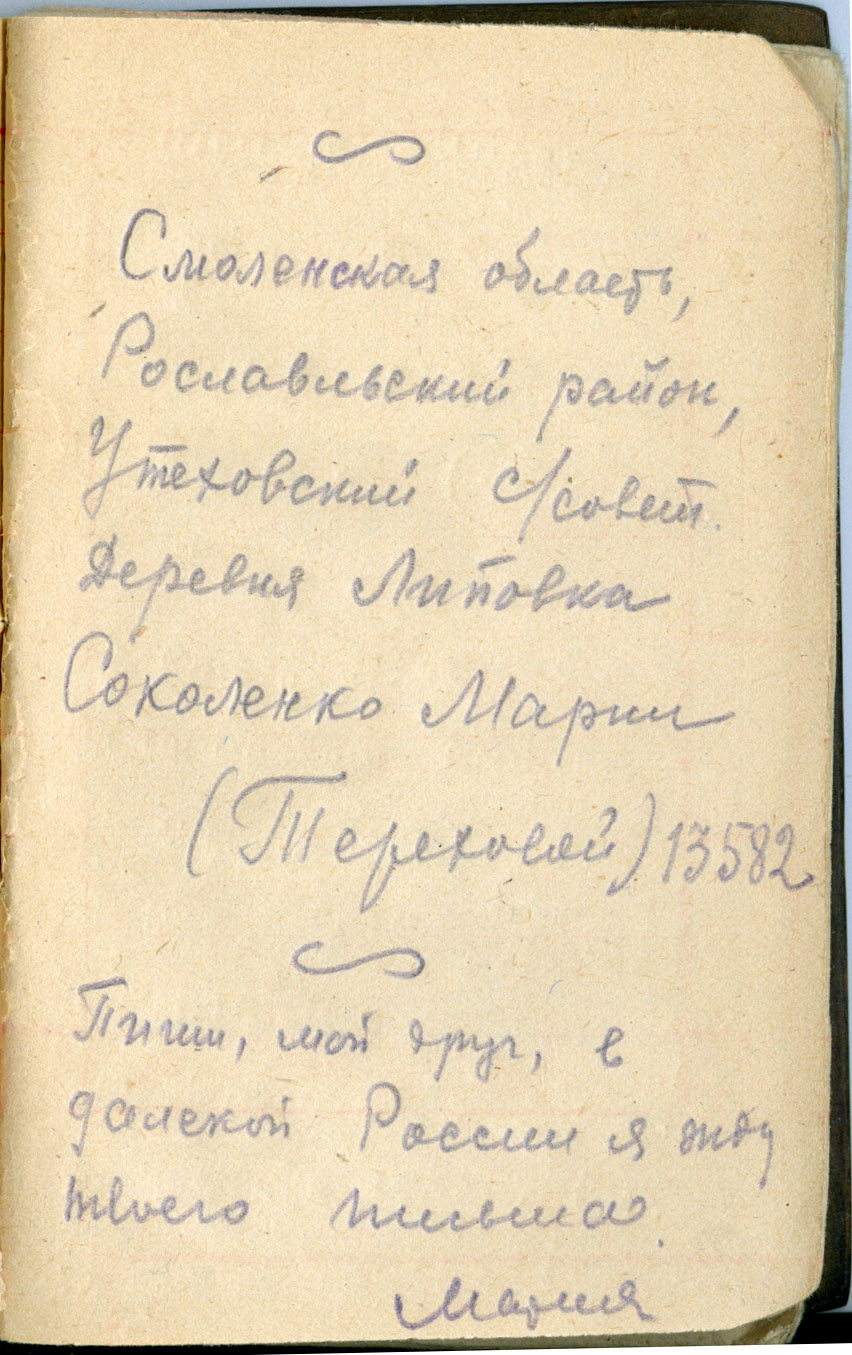 Смоленская область,
Рославльский район,
Утеховский с/совет.
Деревня Липовка
Соколенко Марии
(Тереховой) 13582
Пиши, мой друг, в
далекой России я жду
твоего письма.
Мария